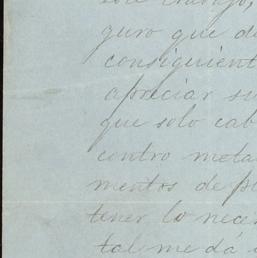 este trabajo,
guro que de
consiguient
apreciar su
que solo cab
contro meta
mentos de p
tener lo nece
tal me dá